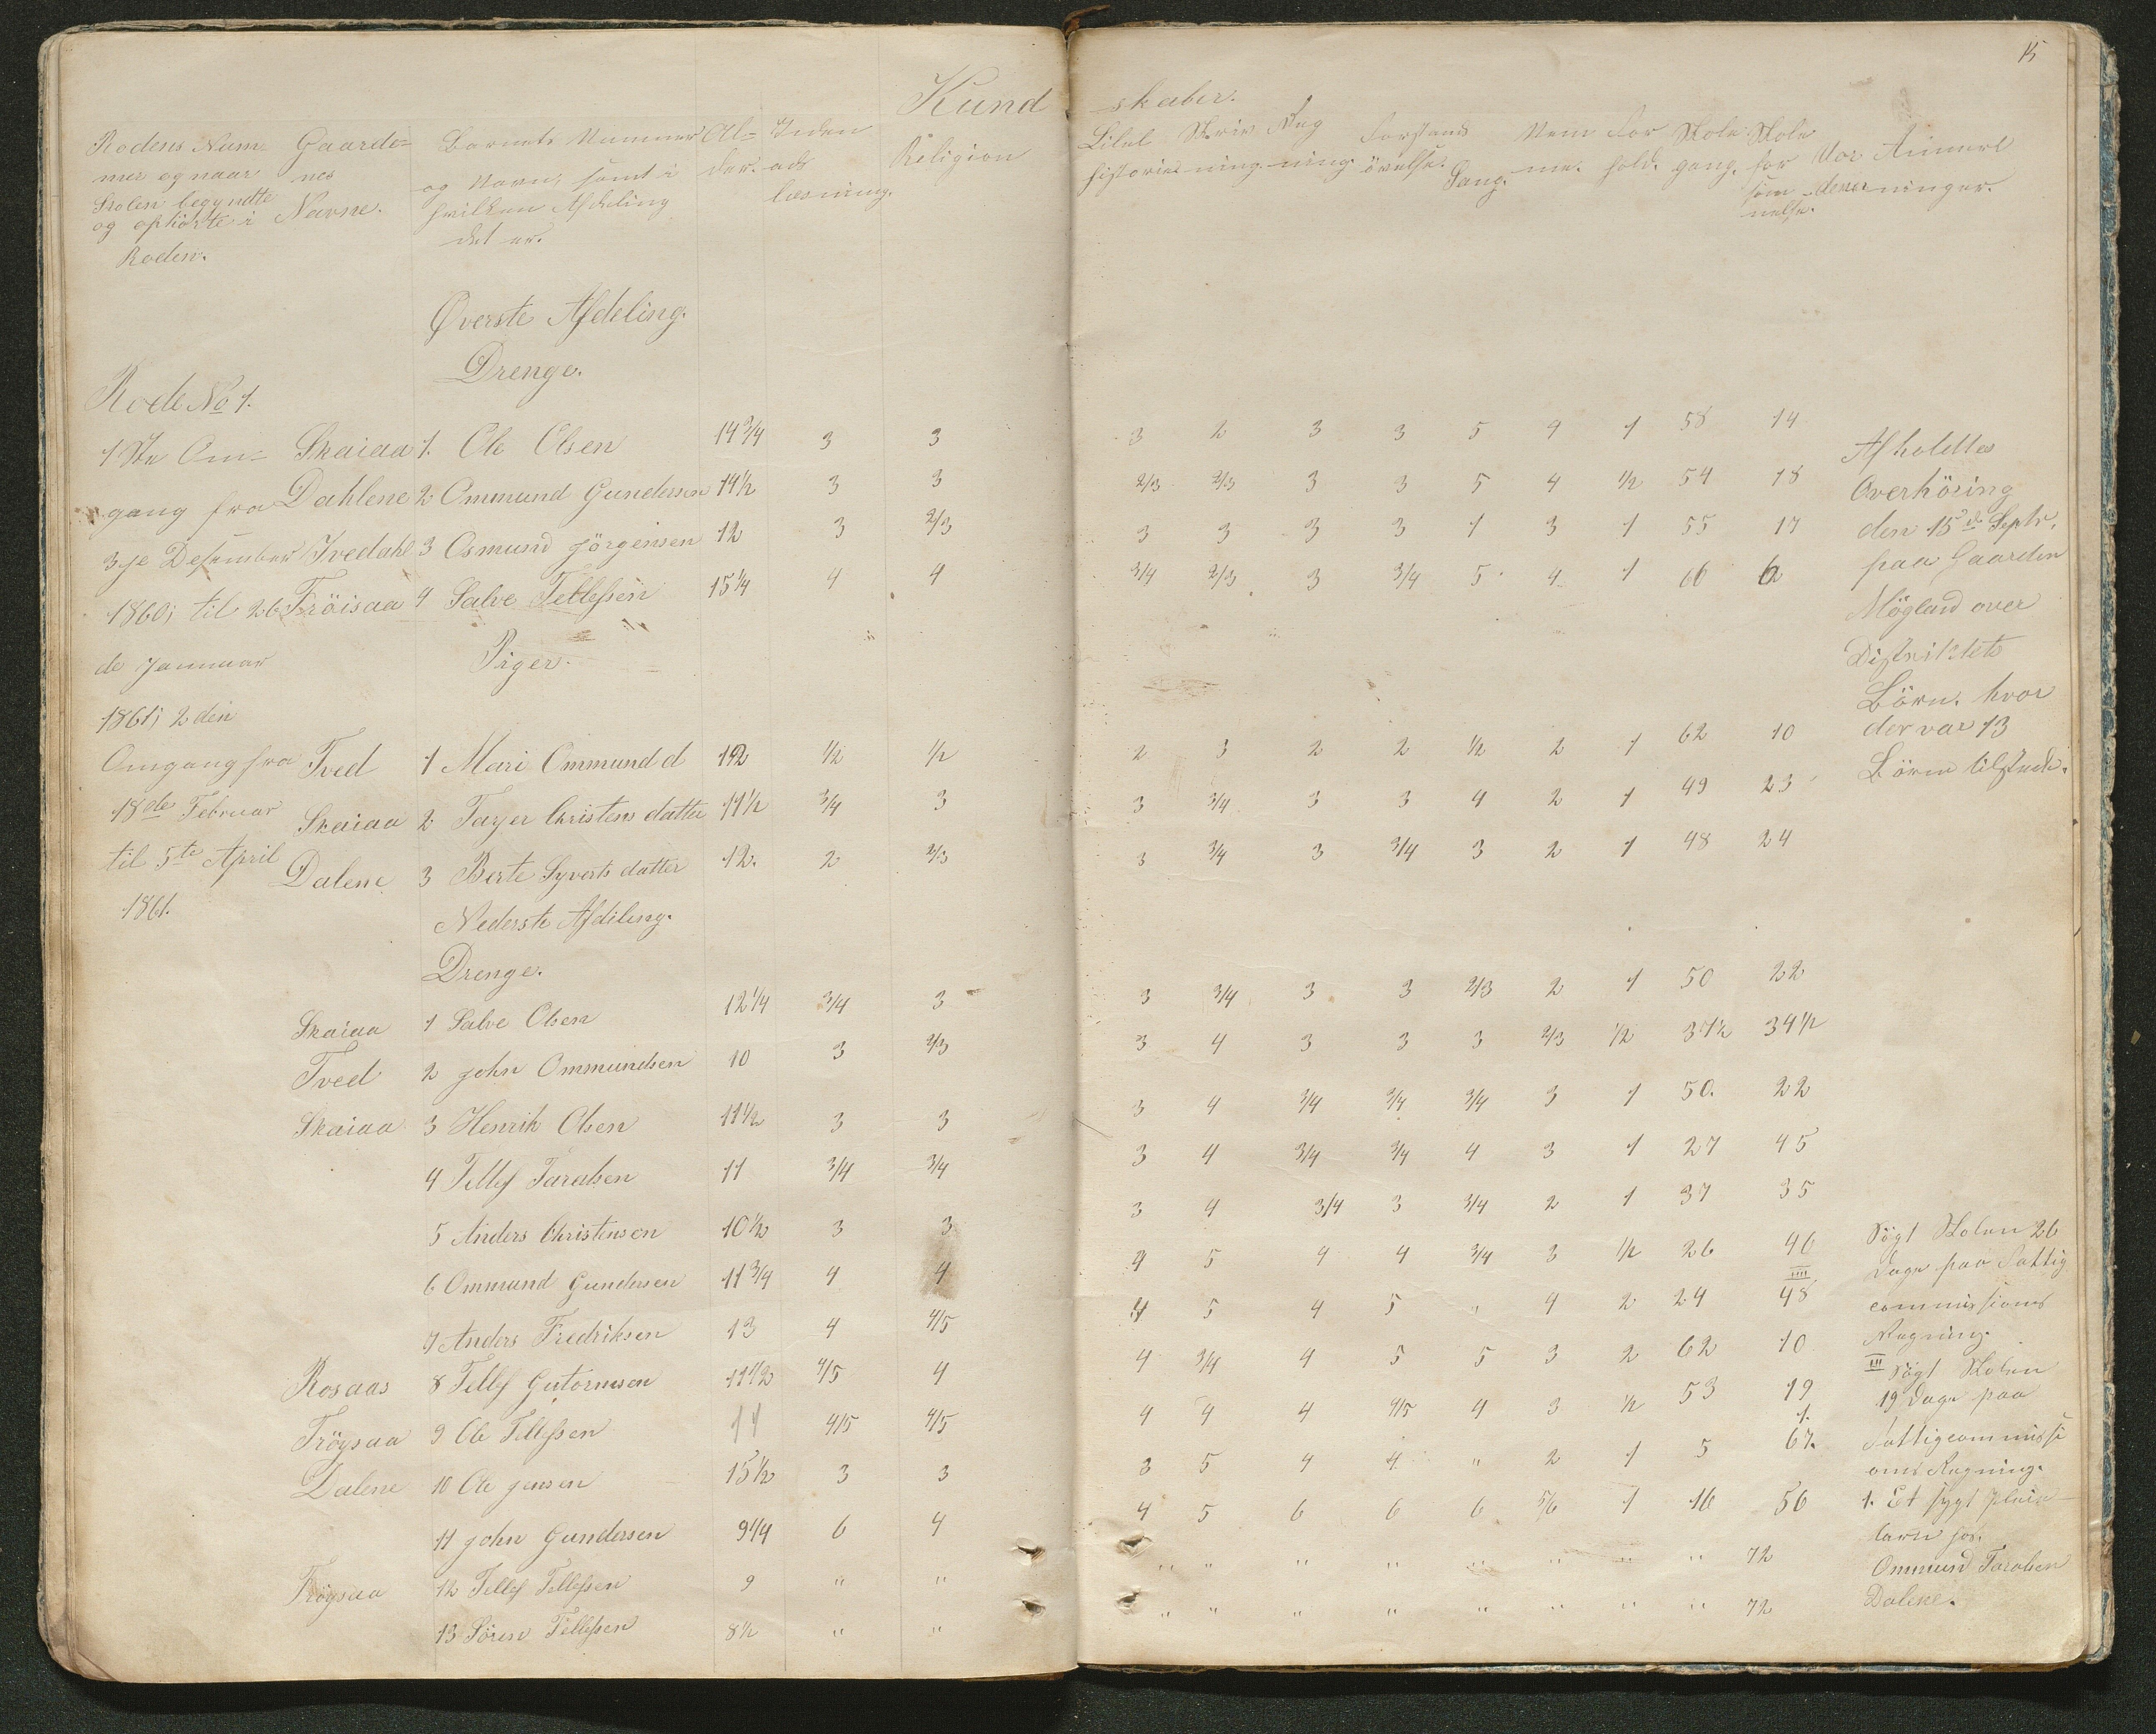 15
Kundskaber.
Rodens Num- Gaarde- Barnets Nummer Al- Inden- Religion Bibel Skriv Reg Forstands Sang. Nem For Skole Skole Vor Anmærk
mer og naar nes og Navn, samt i der. ads historie. ning ning. övelse. me. hold. gang. for dener ninger.
Skolen begyndte Navne. hvilken Afdeling læsning. söm-
og ophörte i det er. melse.
Roden.
Øverste Afdeling.
Drenge.
Rode No 1.
1ste Om- Skaiaa 1. Ole Olsen 14 3/4 3 3 3 2 3 3 5 4 1 58 14 Afholdtes
gang fra Dahlene 2 Ommund Gundersen 14 1/2 3 3 2/3 2/3 3 3 5 4 1/2 54 18 Overhöring
3je Desember Ivedahl 3 Osmund Jörgensen 12 3 2/3 3 3 3 3 1 3 1 55 17 den 15de Septr.
1860; til 26 Fröisaa 4 Salve Tellefsen 15 1/4 4 4 3/4 2/3 3 3/4 5 4 1 66 6 paa Gaarden
de Januar Piger. Mögland over
1861; 2den Distriktets
Omgang fra Tved 1 Mari Ommundd 12 1/2 1/2 2 3 2 2 1/2 2 1 62 10 Börn. hvor
18de Februar Skaiaa 2 Tayer Christens datter 11 1/2 3/4 3 3 3/4 3 3 4 2 1 49 23 der var 13
til 5te April Dalene 3 Berte Syverts datter 12. 2 2/3 3 3/4 3 3/4 3 2 1 48 24 Börn tilstede.
1861.
Nederste Afdeling.
Drenge.
Skaiaa 1 Salve Olsen 12 1/4 3/4 3 3 3/4 3 3 2/3 2 1 50 22
Tved 2 John Ommundsen 10 3 2/3 3 4 3 3 3 2/3 1/2 37 1/2 34 1/2
Skaiaa 3 Henrik Olsen 11 1/2 3 3 3 4 3/4 3/4 3/4 3 1 50. 22
4 Tellef Taralsen 11 3/4 3/4 3 4 3/4 3/4 4 3 1 27 45
5 Anders Christensen 10 1/2 3 3 3 4 3/4 3 3/4 2 1 37 35
6 Ommund Gundersen 11 3/4 4 4 4 5 4 4 3/4 3 1/2 26 46
7 Anders Fredriksen 13 4 4/5 4 5 4 5 " 4 2 24 48
Rosaas 8 Tellef Gutormsen 11 1/2 4/5 4 4 3/4 4 5 5 3 2 62 10
Fröysaa 9 Ole Tellefsen 11 4/5 4/5 4 4 4 4/5 4 3 1/2 53 19
Dalene 10 Ole Jensen 15 1/2 3 3 3 5 4 4 " 2 1 5 1. 67.
11 John Gundersen 9 1/4 6 4 4 5 6 6 6 5/6 1 16 56
Fröysaa 12 Tellef Tellefsen 9 " " " " " " " " " " 72
13 Sören Tellefsen 8 1/2 " " " " " " " " " " 72
Sögt Skolen 26
Dage paa Fattig
commissions
Regning.
III Sögt Skolen
19 Dage paa
Fattigcommissi
ons Regning.
1. Et sygt Pleie
barn hos
Ommund Taralsen
Dalene.